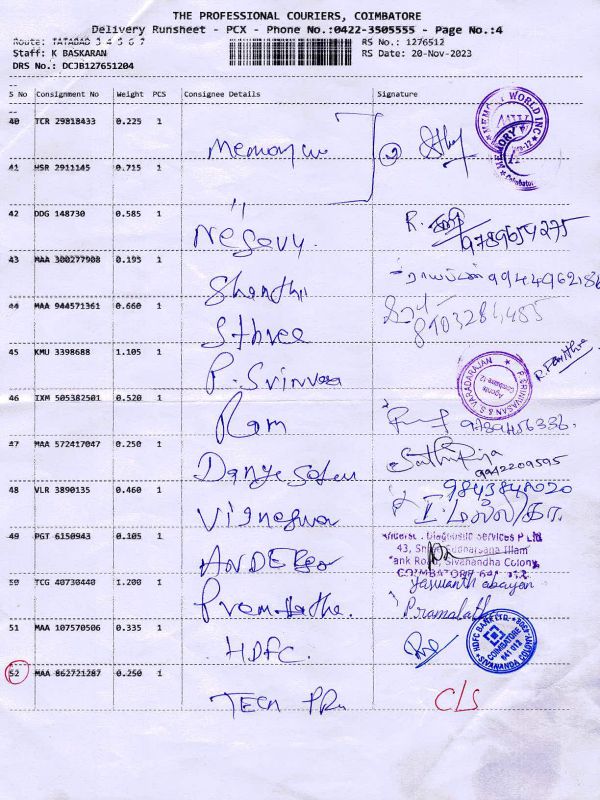 THE PROFESSIONAL COURIERS, COIMBATORE
Delivery Runsheet - PCX - Phone No.:0422-3505555 - Page No.:4
Route: TATABAD 3 4 5 6 7
RS No.: 1276512
Staff: K BASKARAN
RS Date: 20-Nov-2023
DRS No.: DCJB127651204
S No Consignment No Weight PCS Consignee Details Signature
40 TCR 29818433 0.225 1
MEMORY WORLD INC
Coimbatore
41 HSR 2911145 0.715 1
"
42 DDG 148730 0.585 1
R.
9789654275
43 MAA 300277908 0.195 1
Shanthi
44 MAA 944571361 0.660 1
Sthree
8103284485
45 KMU 3398688 1.105 1
P. Srinivasa
P. SRINIVASAN S. VARADARAJAN
Agents
Coimbatore-12
46 IXM 505382501 0.520 1
Ram
9789456336.
47 MAA 572417047 0.250 1
Sathiya
9942209595
48 VLR 3890135 0.460 1
Vigneswar
9843848020
49 PGT 6150943 0.105 1
Diagnostic Services P Ltd
43, Sudharsana Illam
Tank Road, Sivanandha Colony,
COIMBATORE
50 TCG 40730440 1.200 1
Jaswanth abayan
Pramalatha
51 MAA 107570506 0.335 1
HDFC.
HDFC BANK LTD.
COIMBATORE
641 012
SIVANANDA COLONY
52 MAA 862721287 0.250 1
TECH
C/S